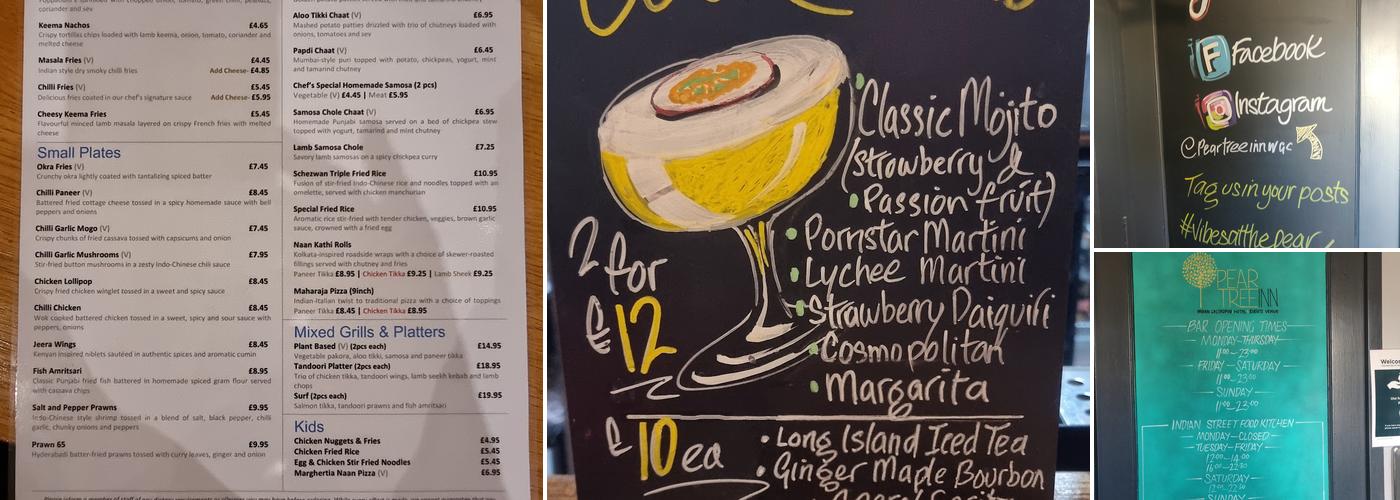 coriander and sev
Keema Nachos £4.65
Crispy tortillas chips loaded with lamb keema, onion, tomato, coriander and
melted cheese
Masala Fries (V) £4.45
Indian style dry smoky chilli fries Add Cheese- £4.85
Chilli Fries (V) £5.45
Delicious fries coated in our chef's signature sauce Add Cheese- £5.95
Cheesy Keema Fries £5.45
Flavourful minced lamb masala layered on crispy French fries with melted
cheese
Small Plates
Okra Fries (V) £7.45
Crunchy okra lightly coated with tantalizing spiced batter
Chilli Paneer (V) £8.45
Battered fried cottage cheese tossed in a spicy homemade sauce with bell
peppers and onions
Chilli Garlic Mogo (V) £7.45
Crispy chunks of fried cassava tossed with capsicums and onion
Chilli Garlic Mushrooms (V) £7.95
Stir-fried button mushrooms in a zesty Indo-Chinese chili sauce
Chicken Lollipop £8.45
Crispy fried chicken winglet tossed in a sweet and spicy sauce
Chilli Chicken £8.45
Wok cooked battered chicken tossed in a sweet, spicy and sour sauce with
peppers, onions
Jeera Wings £8.45
Kenyan inspired niblets sautéed in authentic spices and aromatic cumin
Fish Amritsari £8.95
Classic Punjabi fried fish battered in homemade spiced gram flour served
with cassava chips
Salt and Pepper Prawns £9.95
Indo-Chinese style shrimp tossed in a blend of salt, black pepper, chilli
garlic, chunky onions and peppers
Prawn 65 £9.95
Hyderabadi batter-fried prawns tossed with curry leaves, ginger and onion
Aloo Tikki Chaat (V) £6.95
Mashed potato patties drizzled with trio of chutneys loaded with
onions, tomatoes and sev
Papdi Chaat (V) £6.45
Mumbai-style puri topped with potato, chickpeas, yogurt, mint
and tamarind chutney
Chef's Special Homemade Samosa (2 pcs)
Vegetable (V) £4.45 | Meat £5.95
Samosa Chole Chaat (V) £6.95
Homemade Punjabi samosa served on a bed of chickpea stew
topped with yogurt, tamarind and mint chutney
Lamb Samosa Chole £7.25
Savory lamb samosas on a spicy chickpea curry
Schezwan Triple Fried Rice £10.95
Fusion of stir-fried Indo-Chinese rice and noodles topped with an
omelette, served with chicken manchurian
Special Fried Rice £10.95
Aromatic rice stir-fried with tender chicken, veggies, brown garlic
sauce, crowned with a fried egg
Naan Kathi Rolls
Kolkata-inspired roadside wraps with a choice of skewer-roasted
fillings served with chutney and fries
Paneer Tikka £8.95 | Chicken Tikka £9.25 | Lamb Sheek £9.25
Maharaja Pizza (9inch)
Indian-Italian twist to traditional pizza with a choice of toppings
Paneer Tikka £8.45 | Chicken Tikka £8.95
Mixed Grills & Platters
Plant Based (V) (2pcs each) £14.95
Vegetable pakora, aloo tikki, samosa and paneer tikka
Tandoori Platter (2pcs each) £18.95
Trio of chicken tikka, tandoori wings, lamb seekh kebab and lamb
chops
Surf (2pcs each) £19.95
Salmon tikka, tandoori prawns and fish amritsari
Kids
Chicken Nuggets & Fries £4.95
Chicken Fried Rice £5.45
Egg & Chicken Stir Fried Noodles £5.45
Marghertia Naan Pizza (V) £6.95
2 for
£12
Classic Mojito
(strawberry &
Passion fruit)
Pornstar Martini
Lychee Martini
Strawberry Daiquiri
Cosmopolitan
Margarita
£10 ea
Long Island Iced Tea
Ginger Maple Bourbon
Facebook
Instagram
@Peartreeinnwgc
Tag us in your posts
#Vibesatthepear
PEAR
TREE INN
BAR OPENING TIMES
MONDAY-THURSDAY
11:00-23:00
FRIDAY-SATURDAY
11:00-23:00
SUNDAY
11:00-22:00
INDIAN STREET FOOD KITCHEN
MONDAY-CLOSED
TUESDAY-FRIDAY
12:00-14:00
16:00-22:30
SATURDAY
SUNDAY